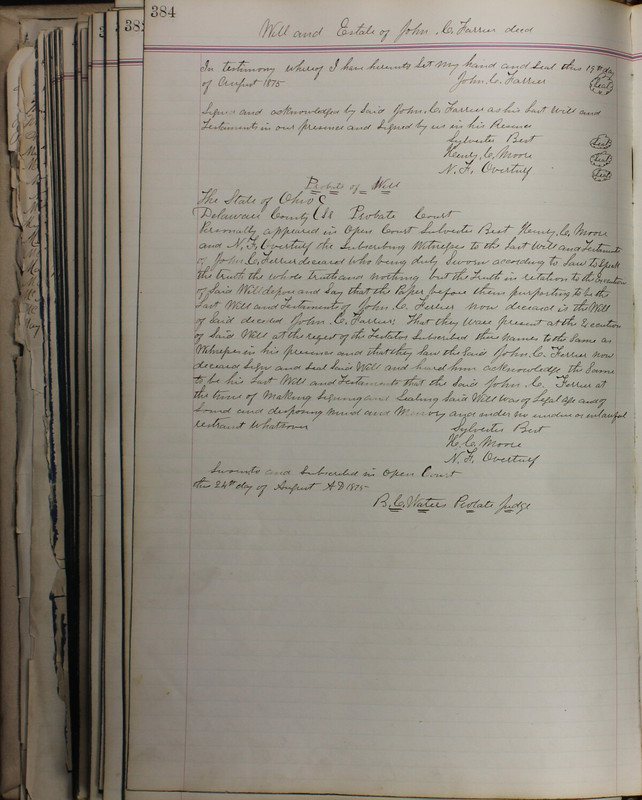 384
Will and Estate of John. C. Farrier decd
In testimony whereof I have hereunto set my hand and Seal this 19th day
of August 1875 John. C. Farrier Seal
Signed and acknowledged by Said John. C. Farrier as his Last Will and
Testament in our presence and Signed by us in his Presence
Sylvester Best Seal
Henry. C. Moore Seal
N. F. Overturf Seal
Probate of Will
The State of Ohio
Delaware County SS Probate Court
Personally appeared in Open Court Sylvester Best Henry. C. Moore
and N. F. Overturf the Subscribing Witnesses to the Last Will and Testament
of John. C. Ferrier deceased who being duly Sworn according to Law to Speak
the truth the whole truth and nothing but the Truth in relation to the Execution
of Said Will depose and Say that the Paper before them purporting to be the
Last Will and Testament of John. C. Ferrier now deceased is the Will
of Said deceased John. C. Farrier; That they was present at the Execution
of Said Will at the request of the Testator Subscribed their names to the Same as
Witnesses in his presence and that they Saw the Said John. C. Ferrier now
deceased Sign and Seal Said Will and heard him acknowledge the Same
to be his Last Will and Testament that the Said John. C. Ferrier at
the time of Making Signing and Sealing Said Will was of Legal age and of
Sound and disposing mind and Memory and under no undue or unlawful
restraint whatsoever
Sylvester Best
H. C. Moore
N. F. Overturf
Sworn to and Subscribed in Open Court
this 24th day of August A D 1875
B. C. Waters Probate Judge